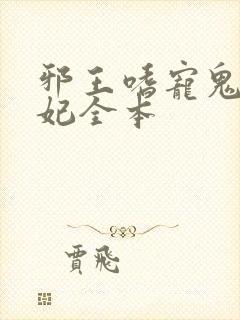 邪王嗜寵鬼
妃全本
賈飛